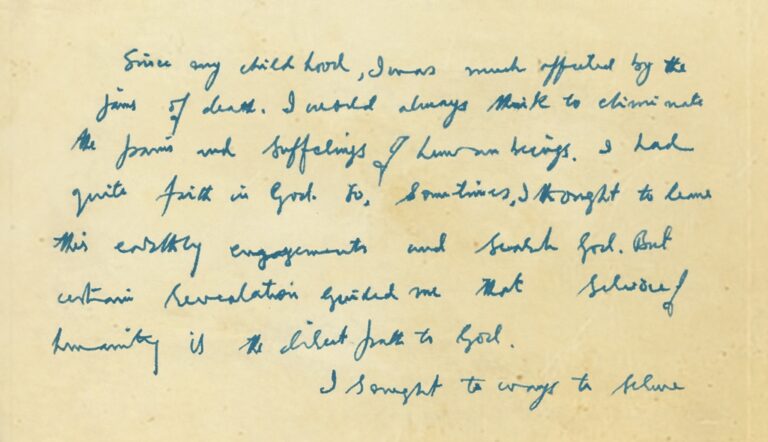 Since my child hood, I was much affected by the
pains of death. I would always think to eliminate
the pains and sufferings of human beings. I had
quite faith in God. So, Sometimes, I thought to leave
this earthly engagements and search God. But
certain revealation guided me that service of
humanity is the direct path to God.
I sought to ways to serve